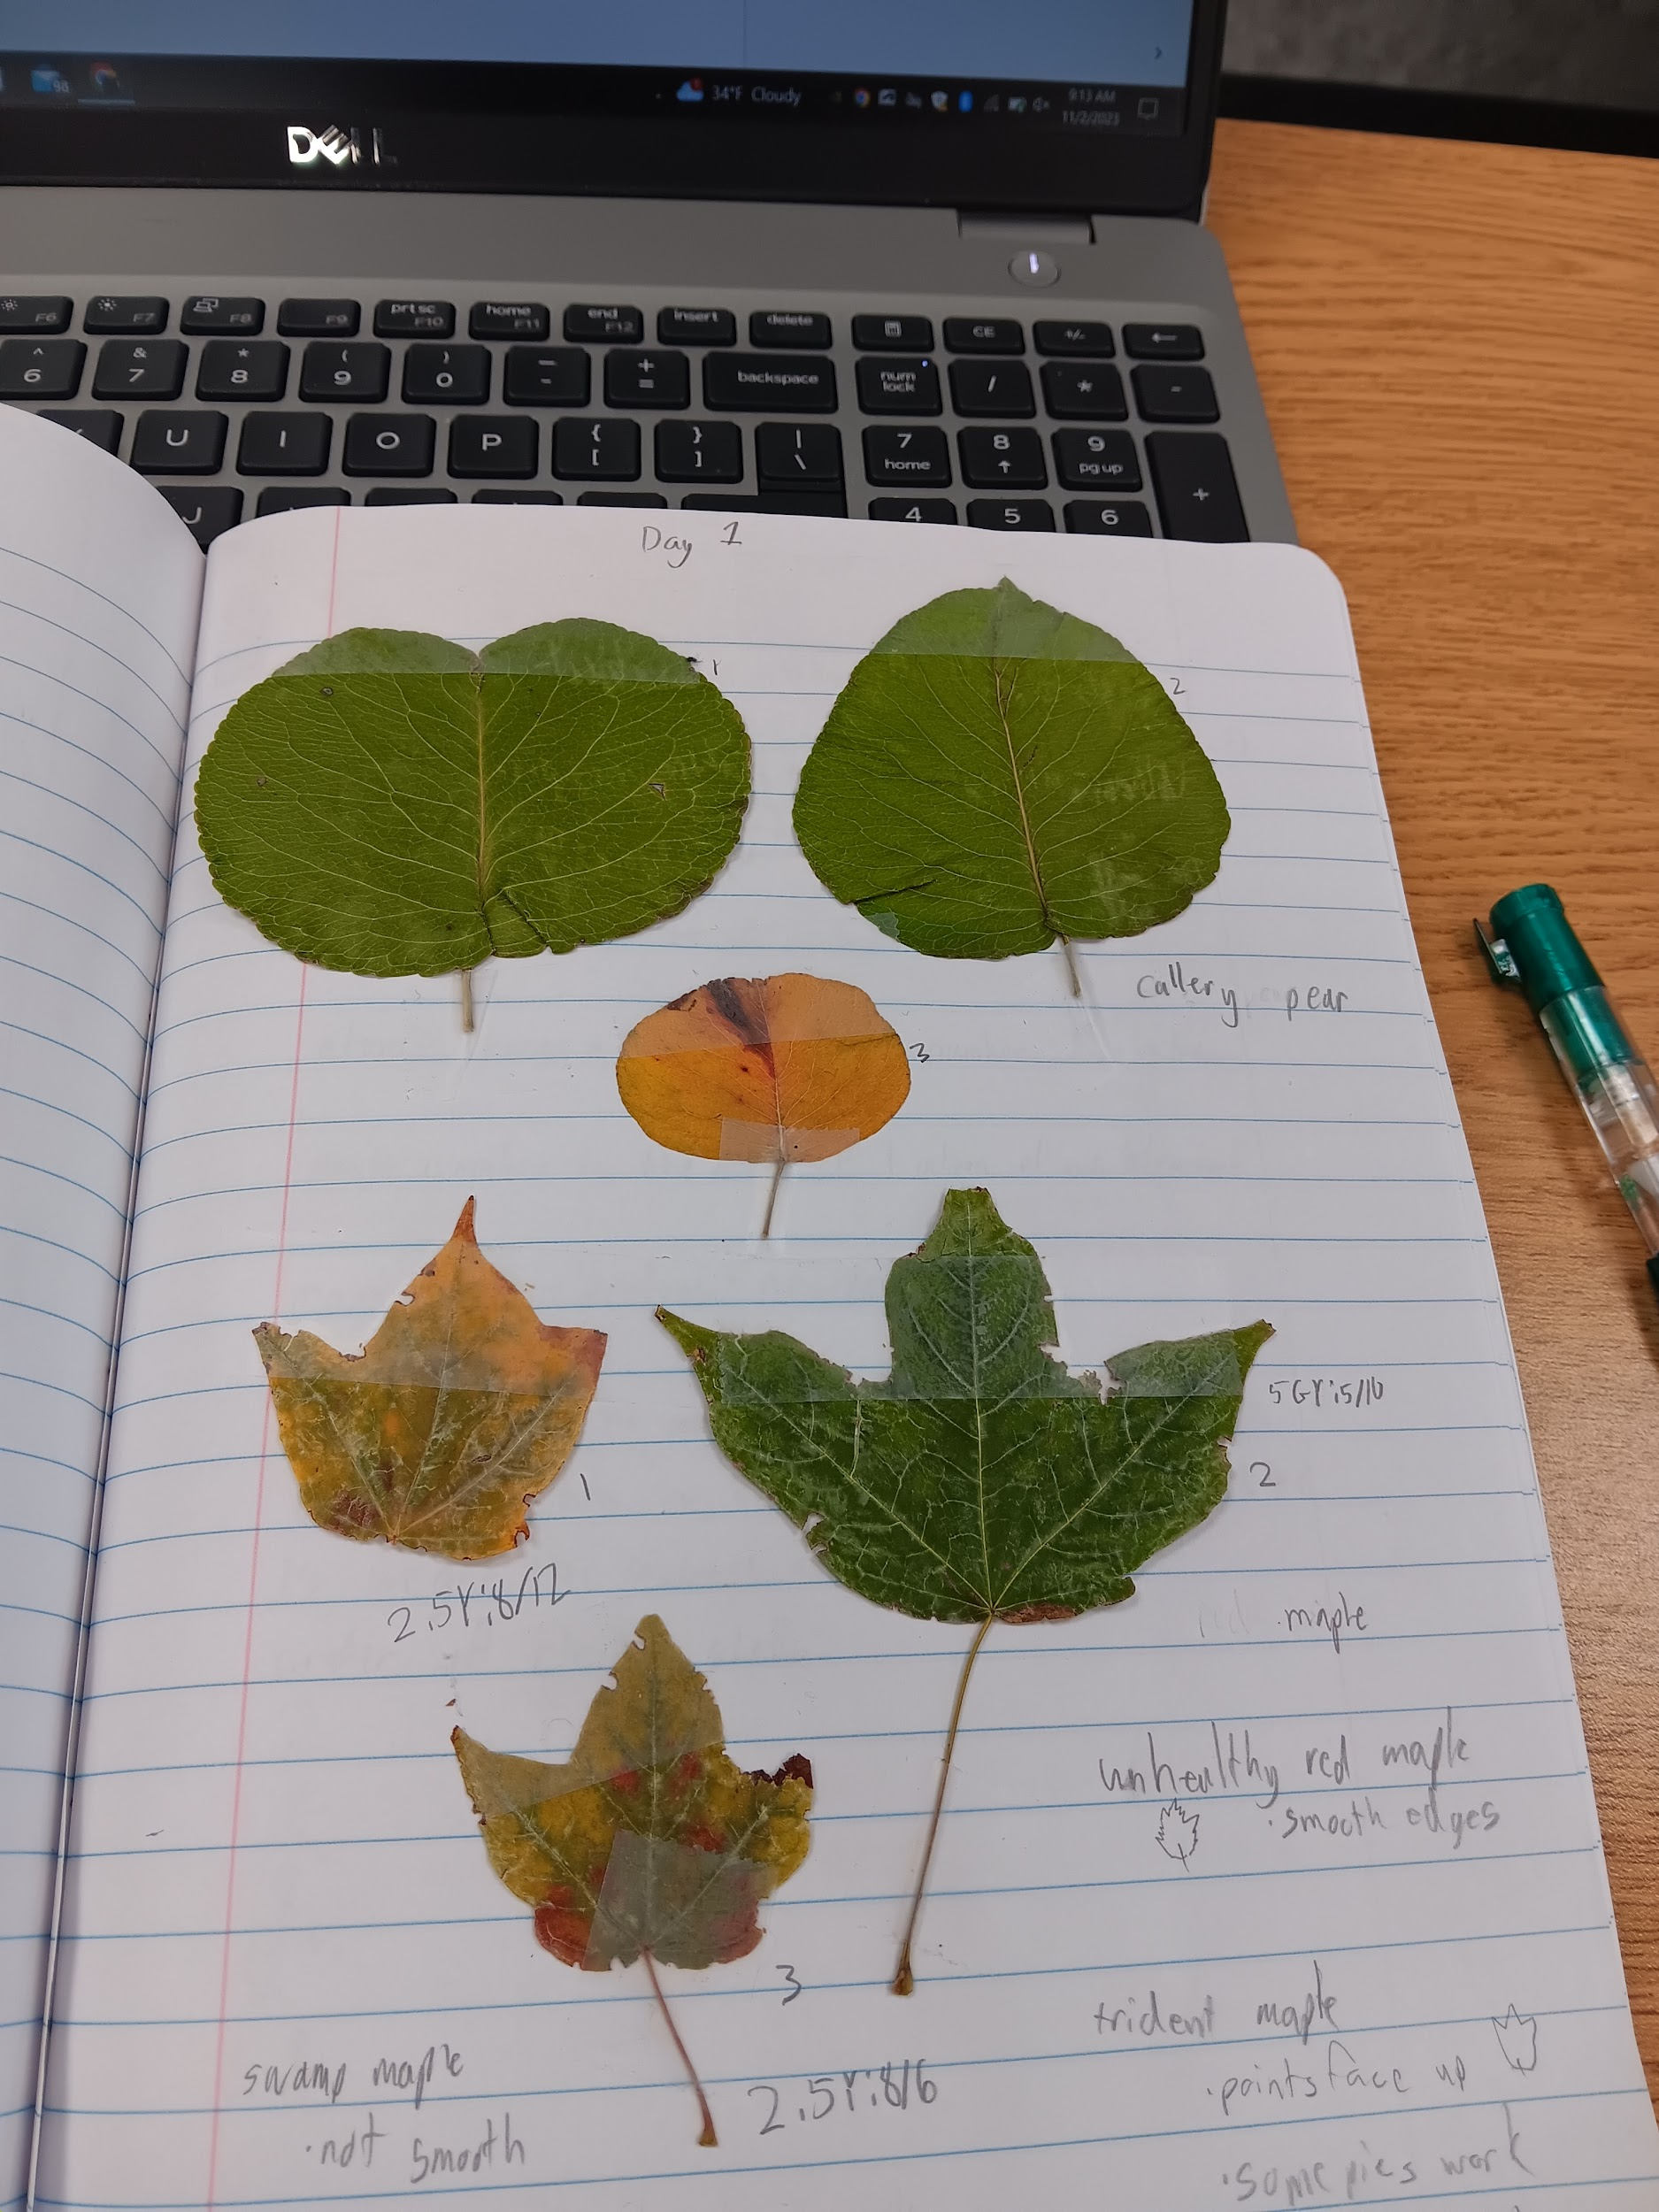 98
34°F Cloudy
9:13 AM
11/2/2023
DELL
F6 F7 F8 F9 prt sc F10 home F11 end F12 insert delete CE +/-
^ 6 & 7 * 8 ( 9 ) 0 _ - + = backspace num lock / * -
U I O P { [ } ] | \ 7 home 8 9 pg up +
J 4 5 6
Day 1
1
2
callery pear
3
5GY:5/10
1
2
2.5Y:8/12
red maple
unhealthy red maple
·smooth edges
3
trident maple
swamp maple
2.5Y:8/6
·points face up
·not smooth
·some pics work